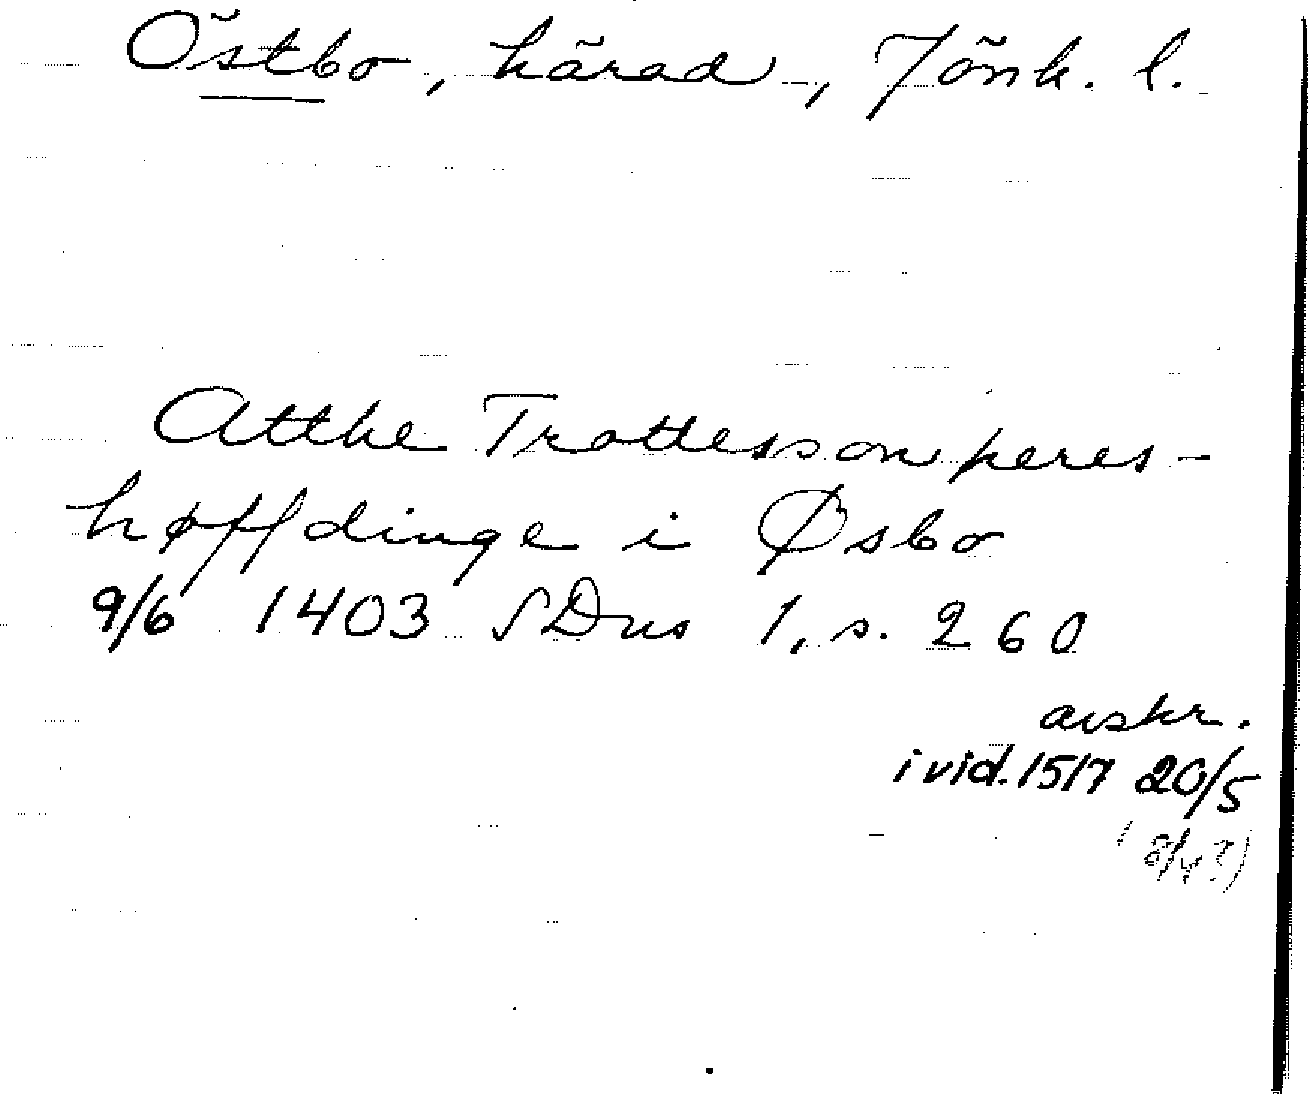 Östbo, härad, Jönk. l.
Attke Trottesson heres-
høffdinge i Øsbo
9/6 1403 SDns 1, s. 260
avskr.
i vid. 1517 20/5
( 8/4 ?)